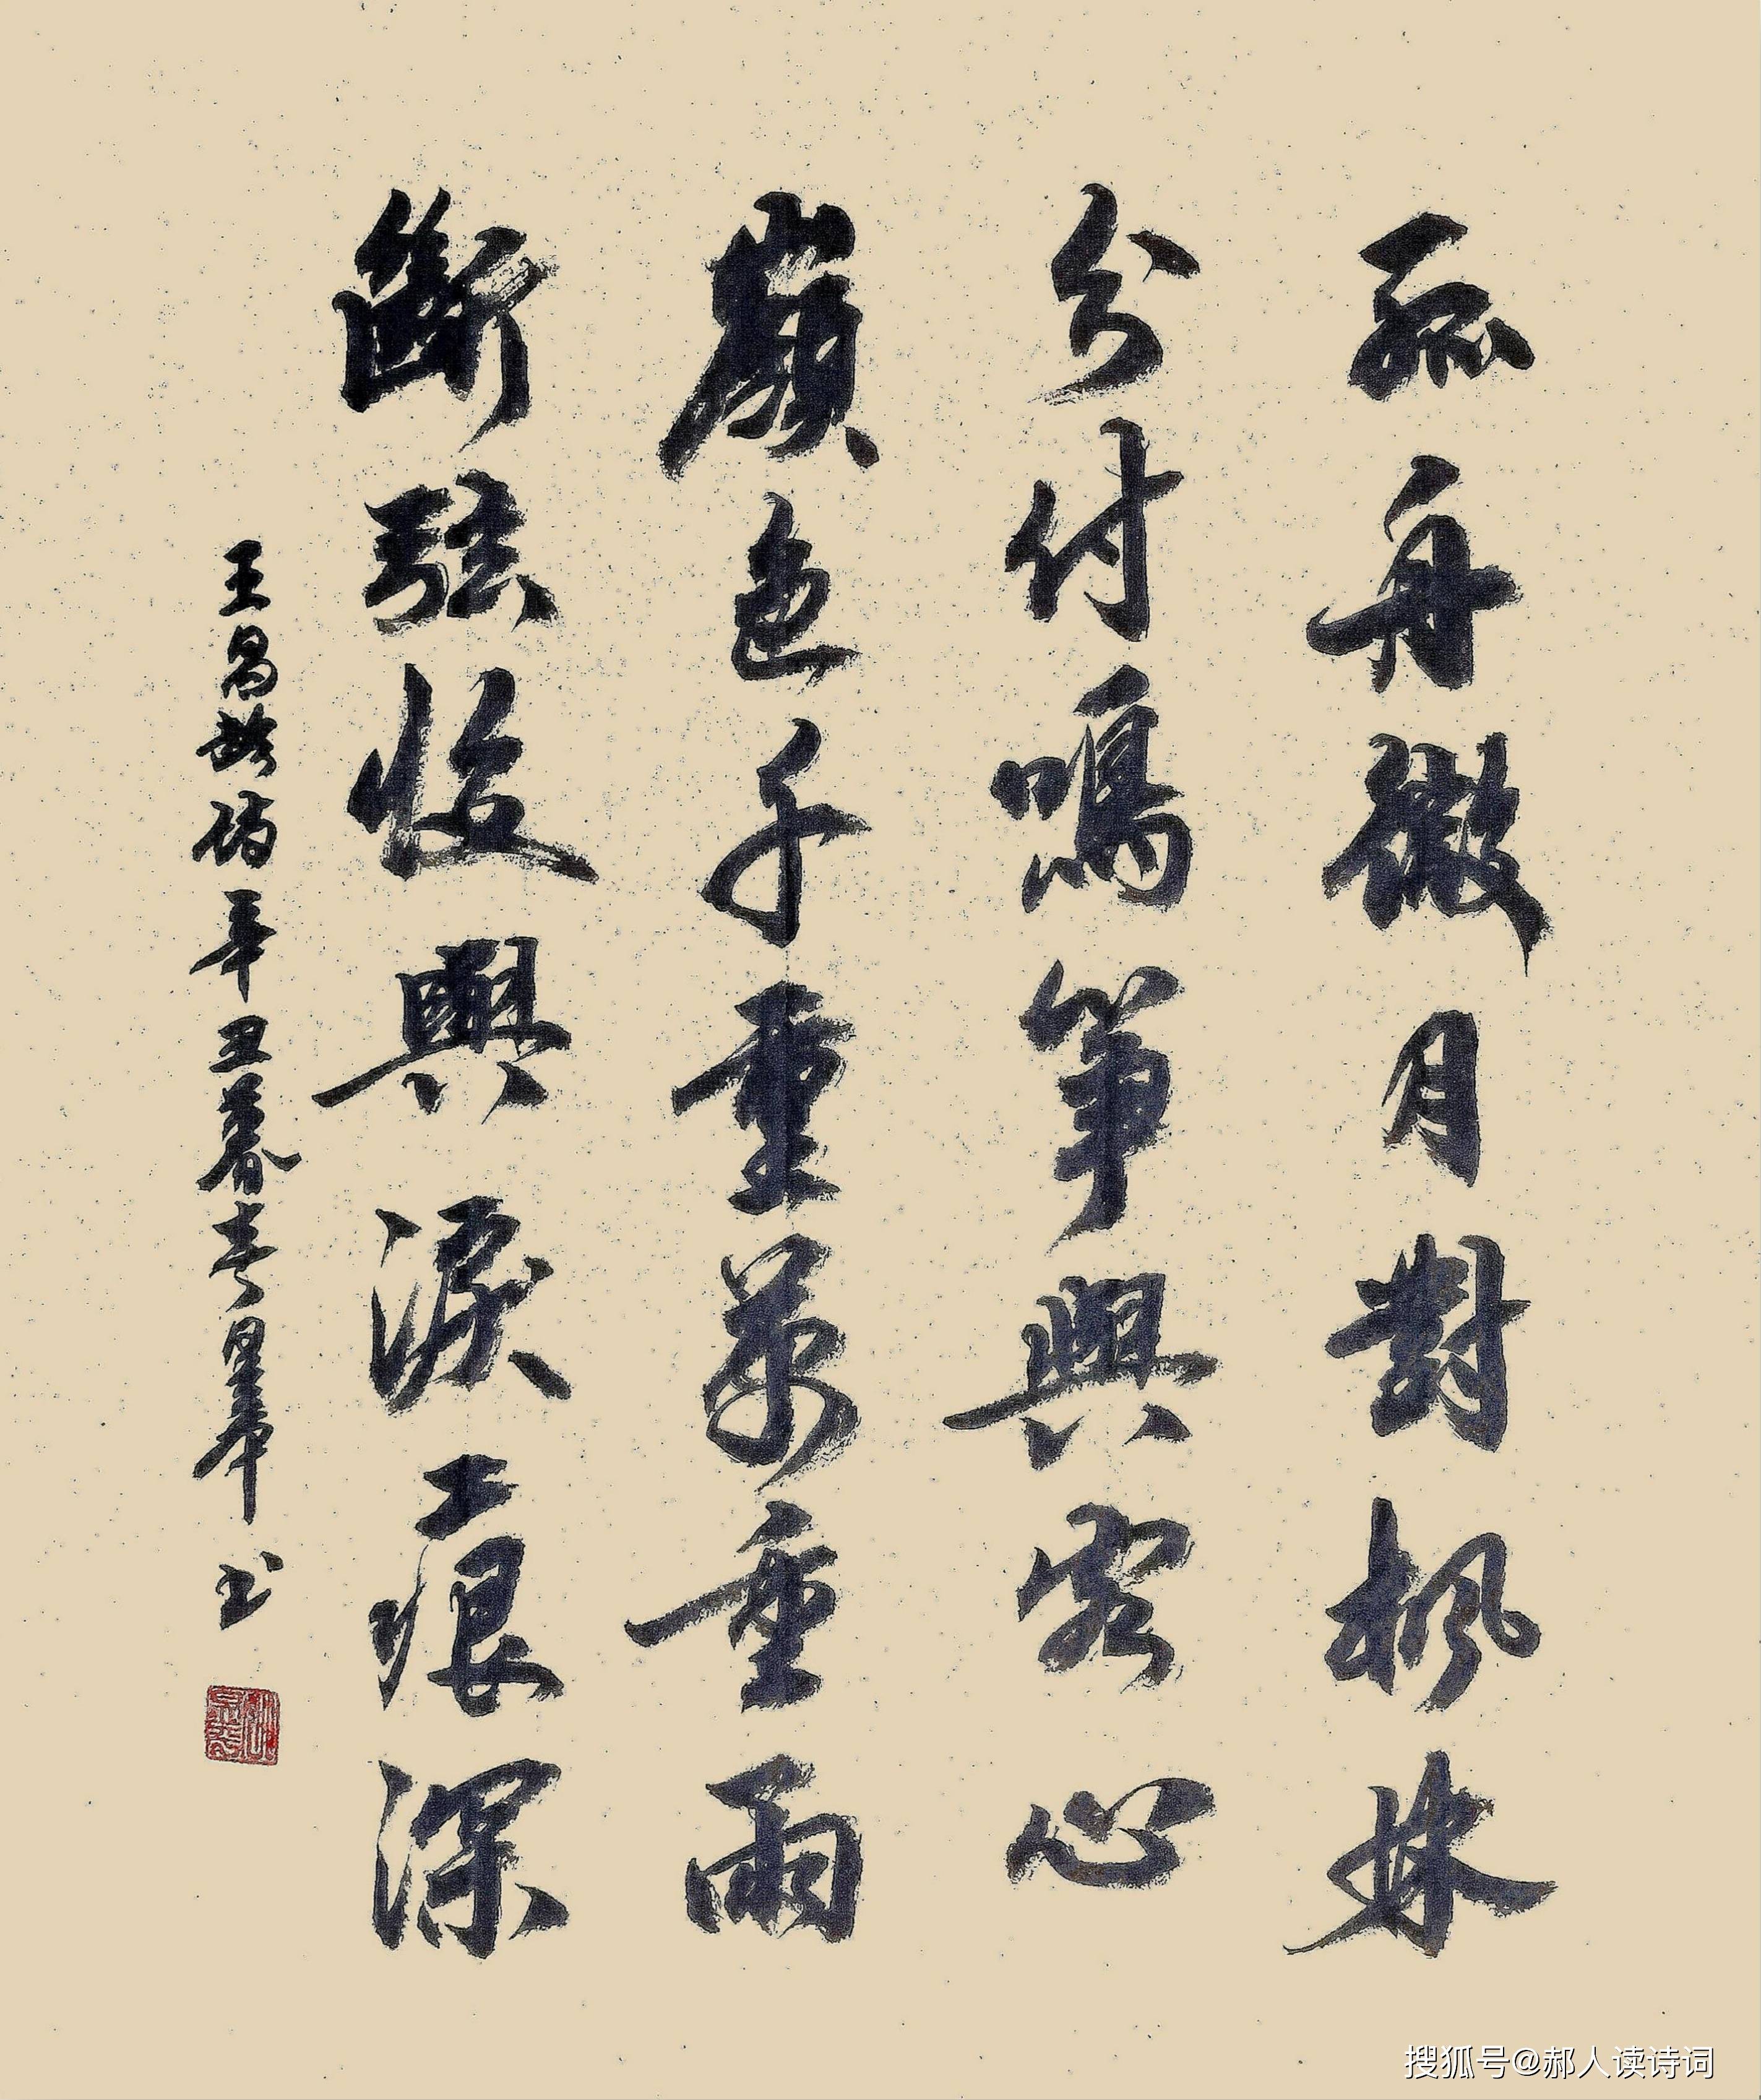 孤舟微月對楓林
分付鳴筝與客心
嶺色千重萬重雨
斷弦收與淚痕深
王昌齡詩辛丑暮春书
搜狐号@郝人读诗词